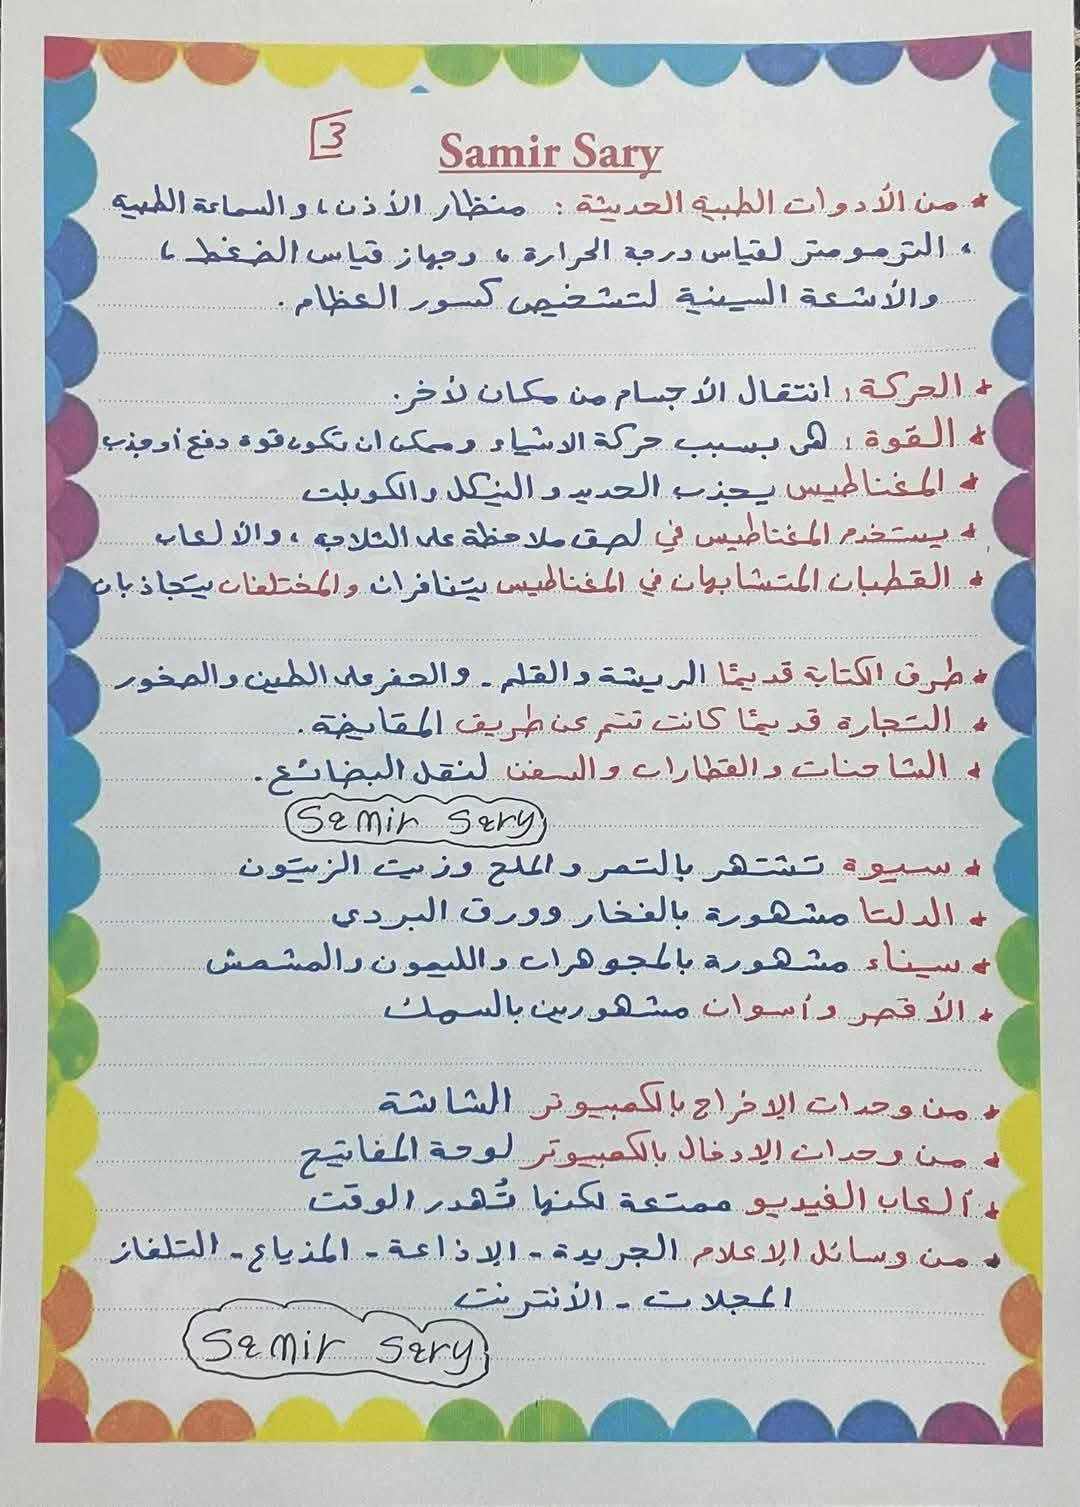 3
Samir Sary
* من الأدوات الطبية الحديثة : منظار الأذن، والسماعة الطبية
، الترمومتر لقياس درجة الحرارة، وجهاز قياس الضغط،
والأشعة السينية لتشخيص كسور العظام.
* الحركة : انتقال الأجسام من مكان لأخر.
* القوة : هى بسبب حركة الاشياء وممكن ان تكون قوة دفع أو جذب
* المغناطيس يجذب الحديد والنيكل والكوبلت
* يستخدم المغناطيس في لصق ملاحظة على الثلاجة، والألعاب
* القطبان المتشابهان في المغناطيس يتنافران والمختلفان يتجاذبان
* طرق الكتابة قديمًا الريشة والقلم - والحفر على الطين والصخور
* التجارة قديمًا كانت تتم عن طريق المقايضة.
* الشاحنات والقطارات والسفن لنقل البضائع.
Samir Sary
* سيوة تشتهر بالتمر والملح وزيت الزيتون
* الدلتا مشهورة بالفخار وورق البردى
* سيناء مشهورة بالمجوهرات والليمون والمشمش
* الأقصر وأسوان مشهورين بالسمك
* من وحدات الإخراج بالكمبيوتر الشاشة
* من وحدات الإدخال بالكمبيوتر لوحة المفاتيح
* ألعاب الفيديو ممتعة لكنها تُهدر الوقت
* من وسائل الإعلام الجريدة - الإذاعة - المذياع - التلفاز
المجلات - الأنترنت
Samir Sary